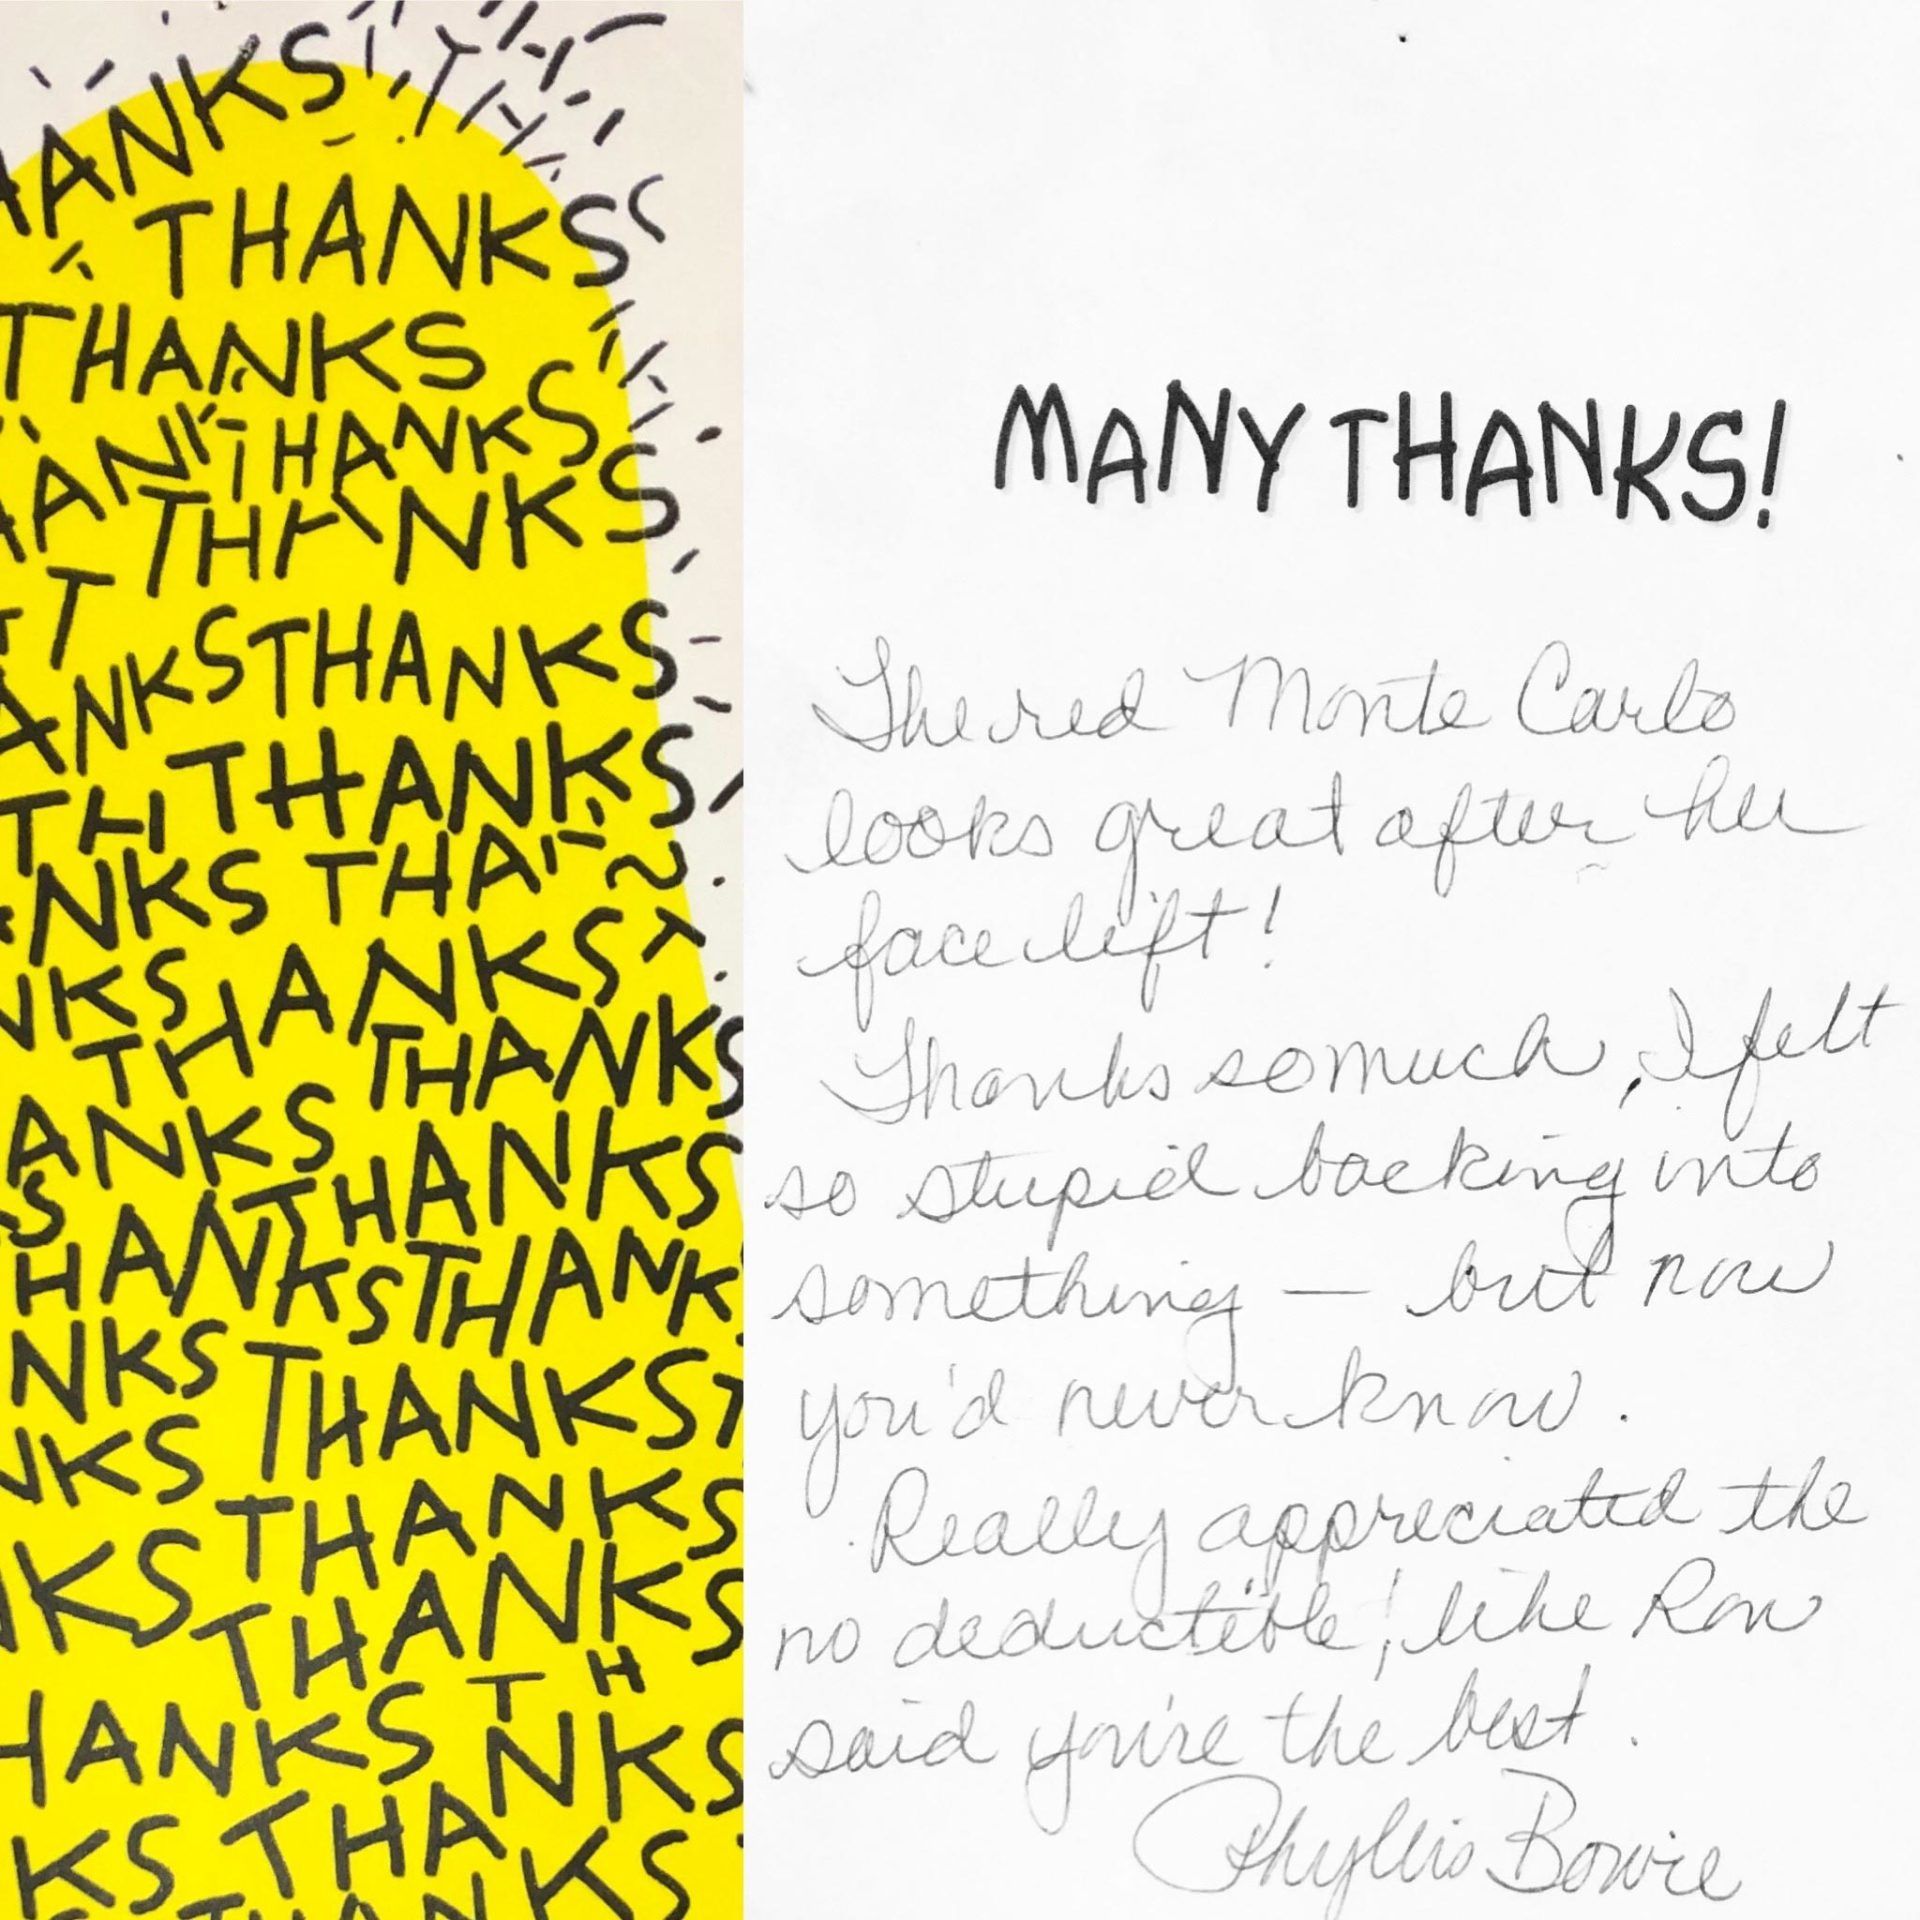 HANKS TH
THANKS
THANKS
ANK THANKS
THANKS
T
ANKS THANKS
TH THANKS
NKS THA
NKS THANKS
THANKS
ANKS THANKS
HANKS THANK
NKS THANKS T
NKS THANKS
NKS THANKS
HANKS TH NKS
KS THANKS
MANY THANKS!
The red Monte Carlo
looks great after her
face lift!
Thanks so much, I felt
so stupid backing into
something — but now
you'd never know.
Really appreciated the
no deductible! like Ron
said you're the best.
Phyllis Bowie